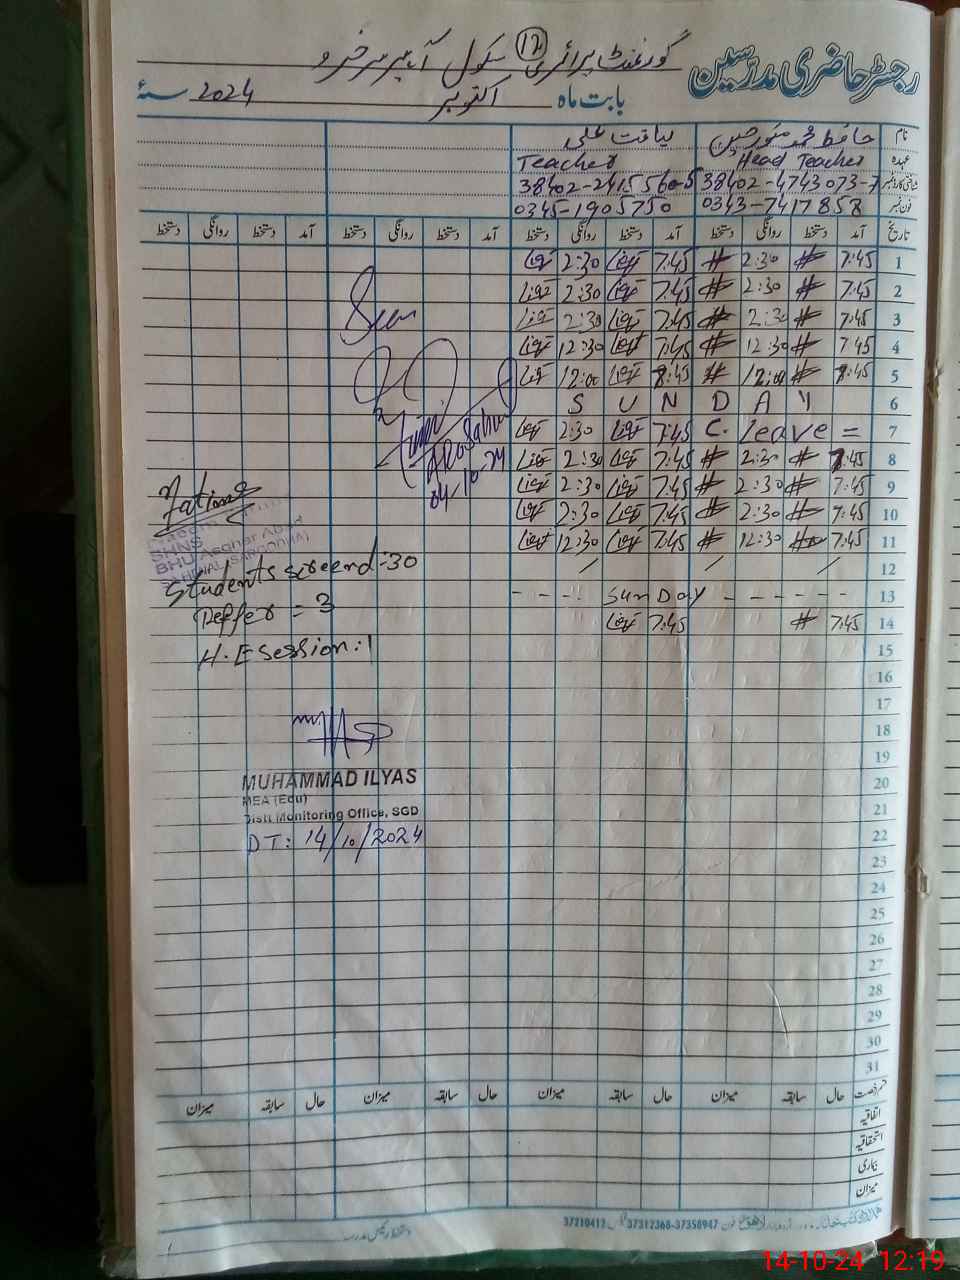 رجسٹر حاضری مدرسین
گورنمنٹ پرائمری سکول
12
بابت ماہ اکتوبر سنۂ 2024
نام حافظ محمد منور حسین لیاقت علی
عہدہ Head Teacher Teacher
شناختی کارڈ نمبر 38402-4743073-7 38402-2415560-5
فون نمبر 0343-7417858 0345-1905750
تاریخ آمد دستخط روانگی دستخط آمد دستخط روانگی دستخط آمد دستخط روانگی دستخط آمد دستخط روانگی دستخط
1 7:45 2:30 7:45 2:30
2 7:45 2:30 7:45 2:30
3 7:45 2:30 7:45 2:30
4 7:45 12:30 7:45 12:30
5 8:45 12:00 8:45 12:00
6 S U N D A Y
7 C. leave = 7:45 2:30
8 7:45 2:30 7:45 2:30
9 7:45 2:30 7:45 2:30
10 7:45 2:30 7:45 2:30
11 7:45 12:30 7:45 12:30
12
13 - - - - Sunday - - - - - -
14 7:45 7:45
15
16
17
18
19
20
21
22
23
24
25
26
27
28
29
30
31
04-10-24
Fatima
SHNS
BHU Asghar Abad
SAHIWAL (SARGODHA)
Students screend :30
Reffer = 3
H.E session :1
MUHAMMAD ILYAS
MEA (Edu)
Distt Monitoring Office, SGD
DT: 14/10/2024
قسم رخصت حال سابقہ میزان حال سابقہ میزان حال سابقہ میزان حال سابقہ میزان
اتفاقیہ
استحقاقیہ
بیماری
میزان
فون 37312368-37358947 37210412
دستخط رئیس مدرسہ
14-10-24 12:19